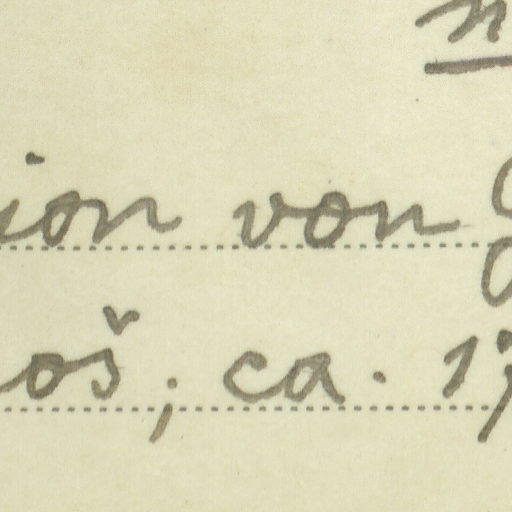 ion von
oš; ca. 17